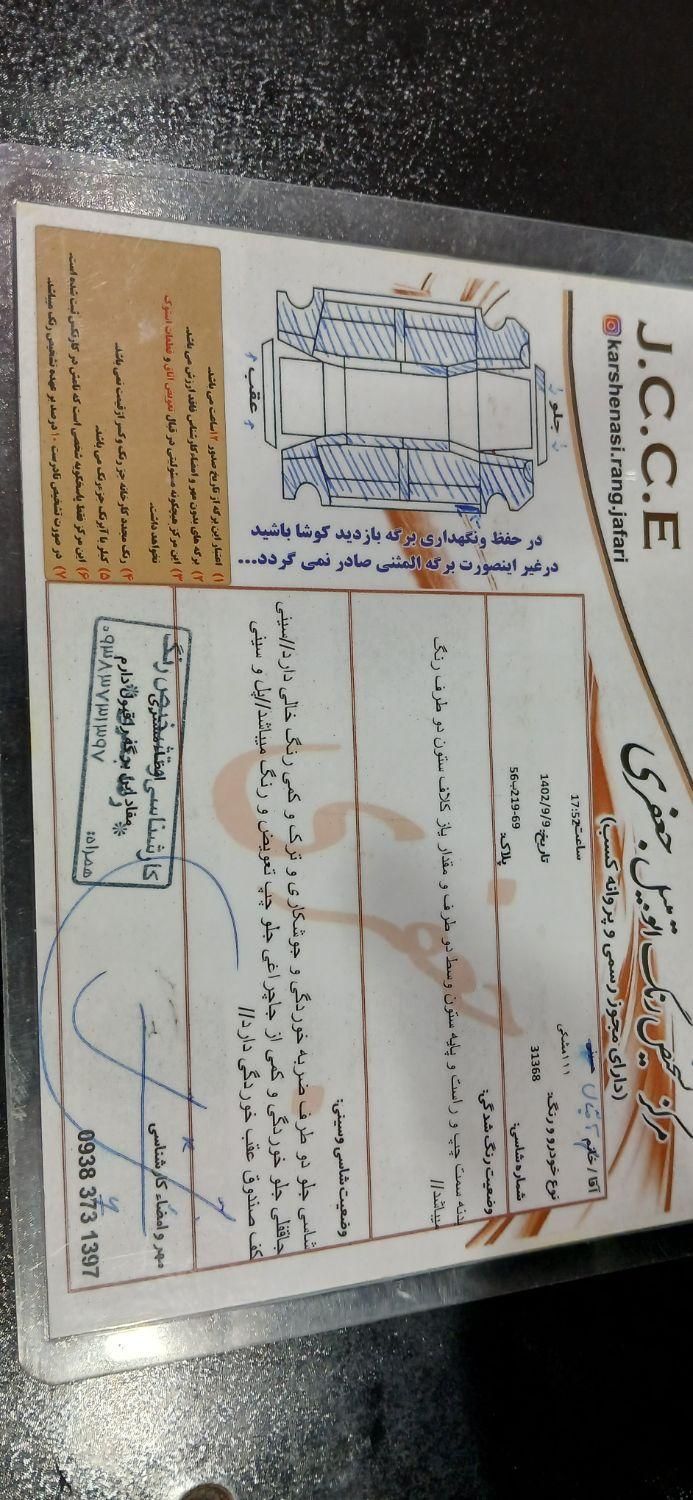 مرکز تشخیص رنگ اتومبیل جعفری
(دارای مجوز رسمی و پروانه کسب)
J.C.C.E
karshenasi.rang.jafari
آقا / خانم
ساعت: 17:52
نوع خودرو و رنگ: ۱۱۱مشکی
تاریخ: 1402/9/9
شماره شاسی: 31368
پلاک: 56ب219-69
جلو
عقب
در حفظ ونگهداری برگه بازدید کوشا باشید
درغیر اینصورت برگه المثنی صادر نمی گردد...
وضعیت رنگ شدگی:
بدنه سمت چپ و راست و پایه ستون وسط دو طرف و مقدار باز کلاف ستون دو طرف رنگ
میباشد//
وضعیت شاسی وسینی:
شاسی جلو دو طرف ضربه خوردگی و جوشکاری و ترک و کمی رنگ خالی دارد//سینی
جاقفلی جلو خوردگی و کمی از جاچراغی جلو چپ تعویض و رنگ میباشد//پل و سینی
کف صندوق عقب خوردگی دارد//
۱) اعتبار این برگه از تاریخ صدور ۱۲ ساعت می باشد.
۲) برگه های بدون مهر و امضاء کارشناس فاقد ارزش می باشد.
۳) این مرکز هیچگونه مسئولیتی در قبال تعویض اتاق و قطعات استوک
نخواهد داشت.
۴) رنگ مجدد کارخانه جز رنگ وکسر از قیمت نمی باشد.
۵) کیلر یا آبرنگ جزء رنگ می باشد.
۶) این مرکز فقط پاسخگوبه شخصی است که نامش در کارتکس ثبت شده است.
۷) در صورت تشخیص نادرست ۱۰ درصد بر عهده تشخیص رنگ میباشد.
مهر و امضاء کارشناسی
0938 373 1397
امضاء مشتری
مفاد این برگه را قبول دارم
کارشناسی و تشخیص رنگ
همراه: ۰۹۳۸۳۷۳۱۳۹۷